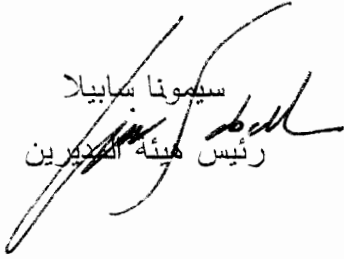 سيمونا سابيلا
رئيس هيئة المديرين